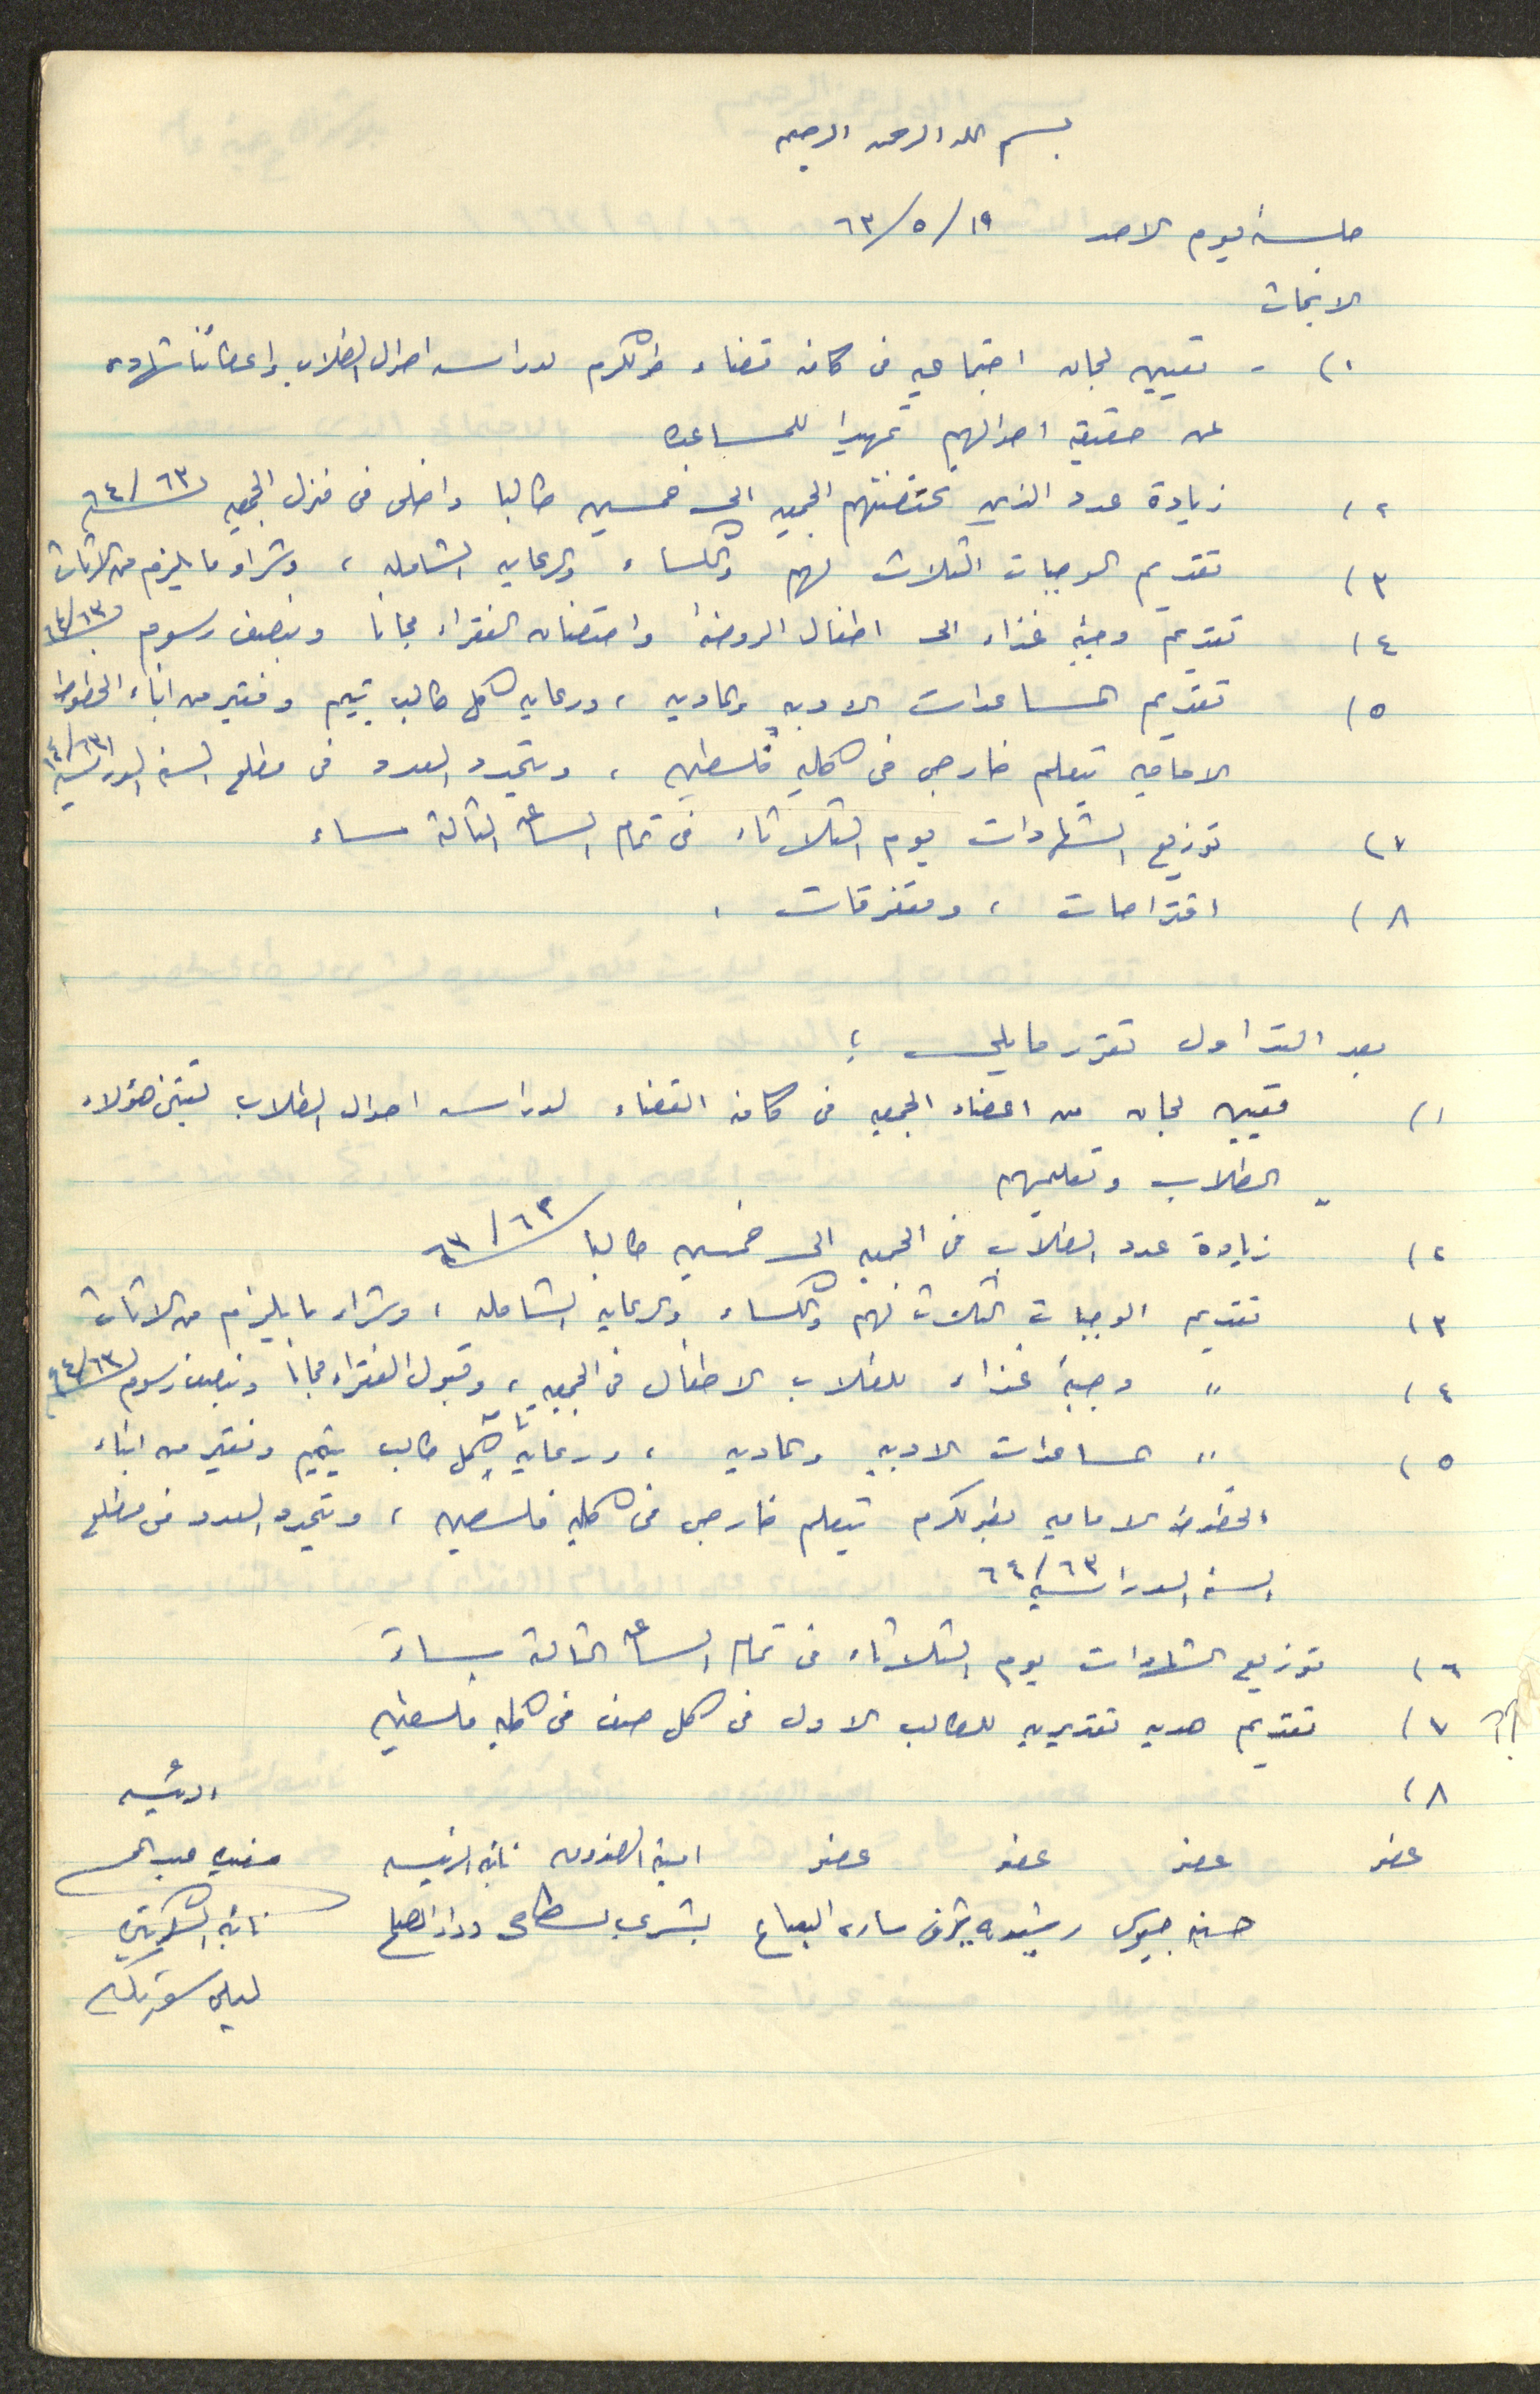 بسم الله الرحمن الرحيم
جلسة يوم الاحد ١٩/٥/٦٣
الابحاث
١) - تعيين لجان اجتماعيه فى كافة قضاء طولكرم لدراسه احوال الطلاب واعطائنا شهاده
عن حقيقة احوالهم تمهيدا للمساعده
٢) زيادة عدد الذين تحتضنهم الجمعيه الى خمسين طالبا داخلى فى منزل الجمعيه ٦٣/٦٤
٣) تقديم الوجبات الثلاث لهم والكساء والرعايه الشامله ، وشراء ما يلزم من الاثاث
٤) تقديم وجبة غذاء الى اطفال الروضة واحتضان الفقراء مجانا وبنصف رسوم ٦٣/٦٤
٥) تقديم المساعدات الادبيه والماديه ، ورعايه كل طالب يتيم وفقير من ابناء الخطوط
الاماميه يتعلم خارجى فى كلية فلسطين ، ويتحدد العدد فى مطلع السنه الدراسيه ٦٣/٦٤
٧) توزيع الشهادات يوم الثلاثاء فى تمام الساعة الثالثة مساء
٨) اقتراحات ، ومتفرقات .
بعد التداول تقرر ما يلى ؛
١) تعيين لجان من اعضاء الجمعيه فى كافة القضاء لدراسه احوال الطلاب لتبنى هؤلاء
الطلاب وتعليمهم
٢) زيادة عدد الطلاب فى الجمعيه الى خمسين طالبا ٦٣/٦٣
٣) تقديم الوجبات الثلاث لهم والكساء والرعايه الشامله ، وشراء ما يلزم من الاثاث
٤) " وجبة غذاء للطلاب الاطفال فى الجمعيه ، وقبول الفقراء مجانا وبنصف رسوم ٦٣/٦٤
٥) " المساعدات الادبيه والماديه ، ورعاية كل طالب يتيم وفقير من ابناء
الخطوط الاماميه بطولكرم يتعلم خارجى فى كلية فلسطين ، ويتحدد العدد فى مطلع
السنه الدراسيه ٦٣/٦٤
٦) توزيع الشهادات يوم الثلاثاء فى تمام الساعة الثالثة مساءً
٧) تقديم هديه تقديريه للطالب الاول فى كل صف فى كلية فلسطين
٨) الرئيسه
عضو عضو عضو عضو امينة الصندوق نائبة الرئيسه
حسنيه جيوسى رشيده شرف ساره البعباع بشرى بسطامى وداد الصلح نائبة السكرتيره
ليلى